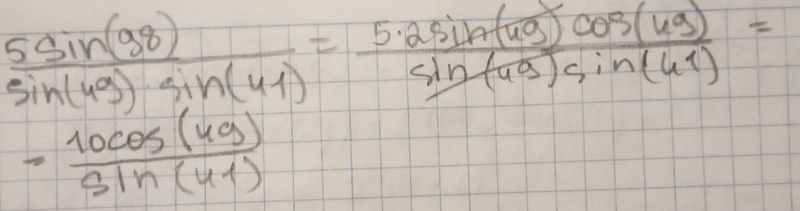 5 sin(98) / sin(49) · sin(41) = 5·2 sin(49) cos(49) / sin(49) sin(41) =
= 10cos(49) / sin(41)